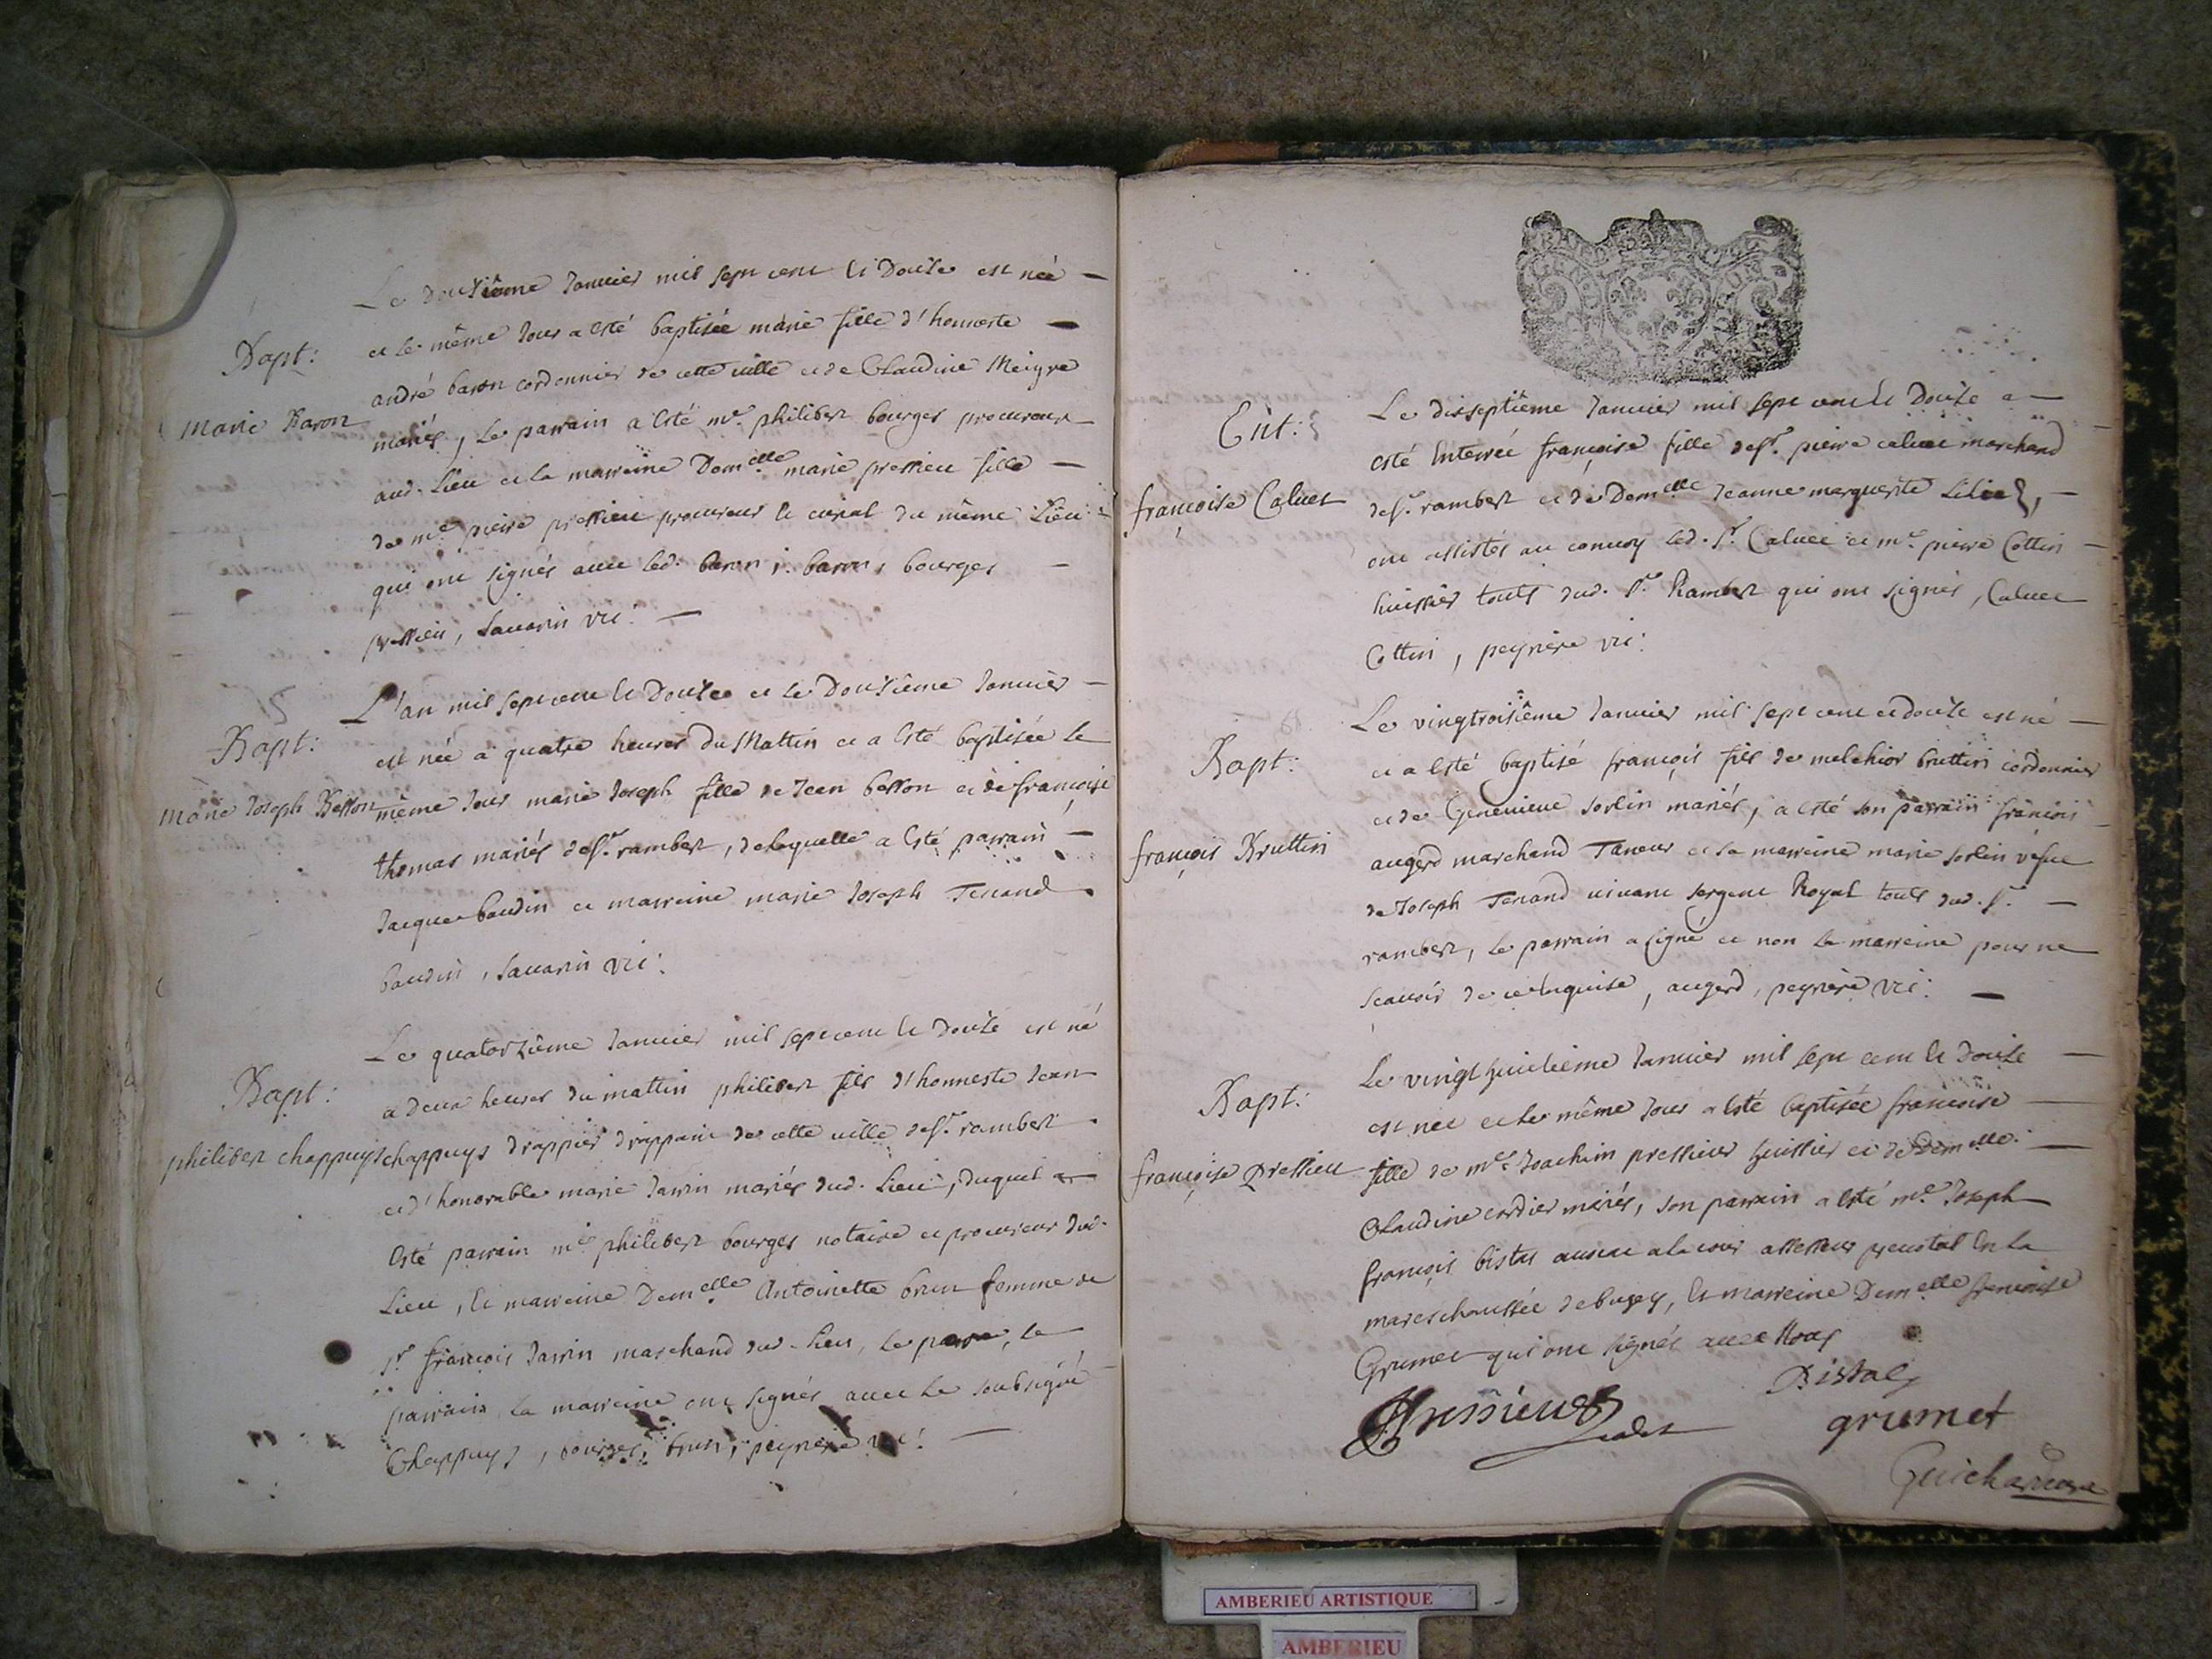 Le douziême Janvier mil sept cent et Douze est née —
et le même Jour a esté baptisée marie fille d'honneste —
Bapt:
andré baron cordonnier de cette ville et de Claudine Meigre
Marie Baron
mariés, le parrain a esté mr. philibert bourges procureur
aud. Lieu et la marreine Domelle marie pressieu fille —
de me pierre pressieu procureur et curial du même Lieu
qui ont signés avec led. baron j. baron, bourges —
pressieu, savarin vic: —
L'an mil sept cent et Douze et le Douziême Janvier —
Bapt:
est née a quatre heures du Mattin et a esté baptisée le
Marie Joseph Besson
même Jour marie Joseph fille de Jean besson et de françoise
thomas mariés de st. rambert, de laquelle a esté parrain —
Jacque baudin et marreine marie Joseph Tenand
baudin, savarin vic:
Le quatorziême Janvier mil sept cent et Douze est né
Bapt:
a deux heures du mattin philibert fils d'honneste Jean
philibert chappuys
chappuys drappier drappant de cette ville de st. rambert
et d'honorable marie Janin mariés dud. Lieu, duquel a
esté parrain me philibert bourges notaire et procureur dud.
Lieu, et marreine Demelle Antoinette brun femme de
sr françois Janin marchand dud. Lieu, le pere, le
parrain la marreine ont signés avec le soubsigné
Chappuys, bourges, brun, peyriere vic: —
Le disseptiême Janvier mil sept cent et Douze a —
Ent:
esté Enterrée françoise fille de sr. pierre calvet marchand
françoise Calvet
de st. rambert et de Demelle Jeanne marguerite —
ont assistés au convoy led. sr. Calvet et me. pierre Cottin —
huissier touts dud. st. Rambert qui ont signés, Calvet
Cottin, peyriere vic:
Le vingtroisiême Janvier mil sept cent et douze est né —
Bapt:
et a esté baptisé françois fils de melchior bruttin cordonnier
et de Genevieve sorlin mariés, a esté son parrain françois
françois Bruttin
augerd marchand Taneur et sa marreine marie sorlin vefue
de Joseph Tenand vivant sergent Royal touts dud. st. —
rambert, le parrain a signé et non la marreine pour ne
scavoir de ce Enquise, augerd, peyriere vic: —
Le vingt huictieme Janvier mil sept cent et douze —
Bapt:
est nee et le même Jour a esté baptisée françoise —
françoise Pressieu
fille de me Joachim pressieu huissier et de Demelle. —
Claudine cordier mariés, son parrain a esté me. Joseph
françois bistas avocat a la cour assesseur prevostal En la
mareschaussée de bugey, et marreine Demelle françoise
Grumet qui ont signés avec Nous
Pressieu
Bistac
grumet
AMBERIEU ARTISTIQUE
AMBERIEU